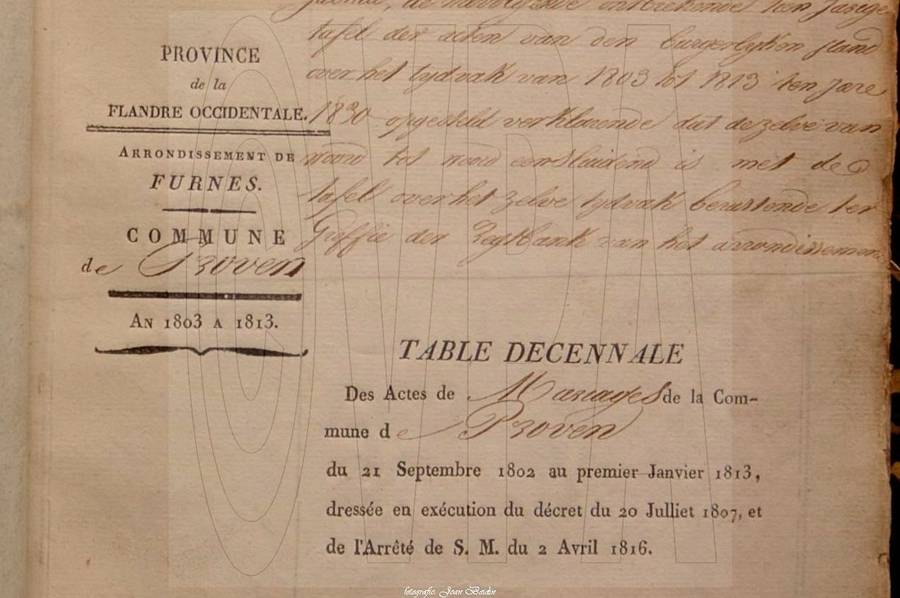 tafel der acten van den burgerlyken stand
over het tydvak van 1803 tot 1813 ten jare
1830 opgesteld verklarende dat dezelve van
woord tot woord eensluidend is met de
tafel over het zelve tydvak berustende ter
Griffie der Regtbank van het arrondissement
PROVINCE
de la
FLANDRE OCCIDENTALE.
ARRONDISSEMENT DE
FURNES.
COMMUNE
de Proven
AN 1803 A 1813.
TABLE DECENNALE
Des Actes de Mariages de la Com-
mune de Proven
du 21 Septembre 1802 au premier Janvier 1813,
dressée en exécution du décret du 20 Julliet 1807, et
de l'Arrêté de S. M. du 2 Avril 1816.
fotografie: Joan Beidin